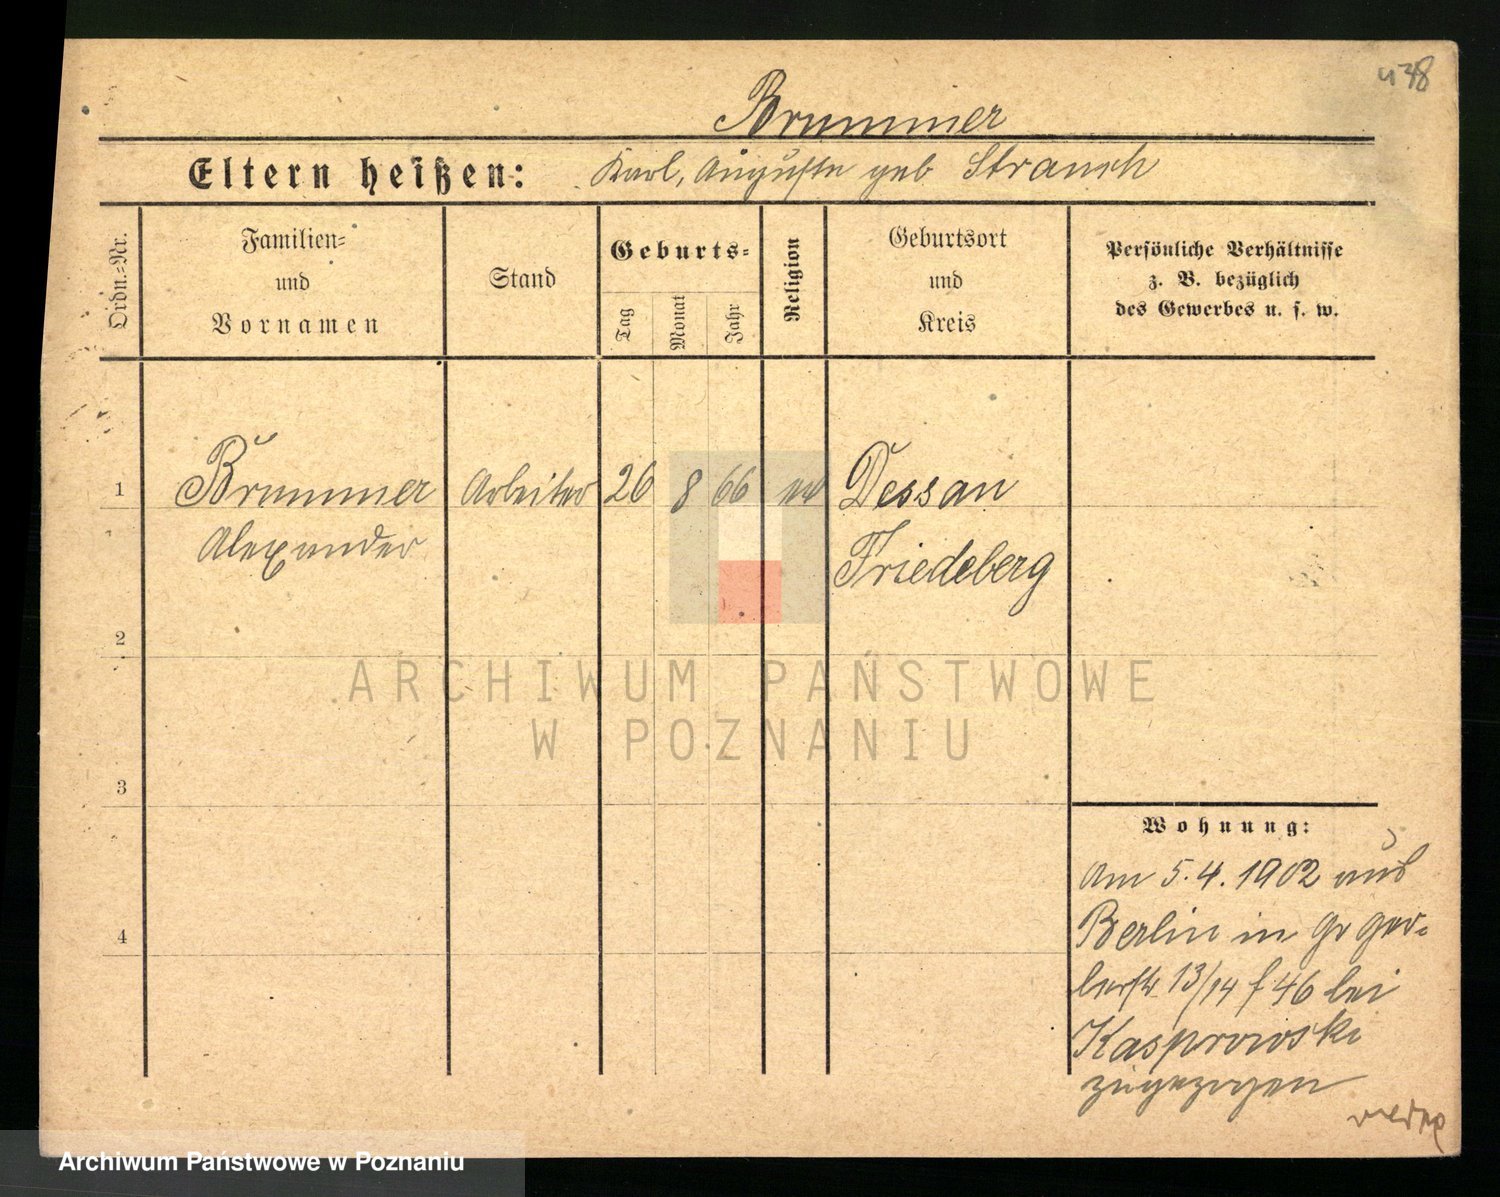 438
Brummer
Eltern heißen: Karl, Auguste geb Strauch
Ordn.=Nr.
Familien=
und
Vornamen
Stand
Geburts=
Tag
Monat
Jahr
Religion
Geburtsort
und
Kreis
Persönliche Verhältnisse
z. B. bezüglich
des Gewerbes u. s. w.
1 Brummer Arbeiter 26 8 66 ev Dessau
Alexander Friedeberg
2
ARCHIWUM PAŃSTWOWE
W POZNANIU
3
Wohnung:
Am 5.4.1902 aus
Berlin in Gr Ger=
4
berstr 13/14 f 46 bei
Kasprowski
zugezogen
Archiwum Państwowe w Poznaniu